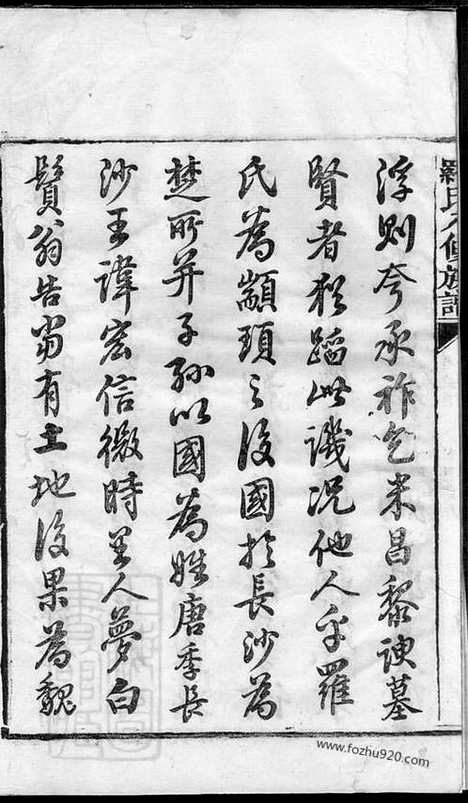 羅氏八修族譜
浮則夸承祚乞米昌黎諛墓
賢者猶蹈此譏况他人乎羅
氏為顓頊之後國於長沙為
楚所并子孫以國為姓唐季長
沙王諱宏信微時里人夢白
鬚翁告當有土地後果為魏
www.fozhu920.com